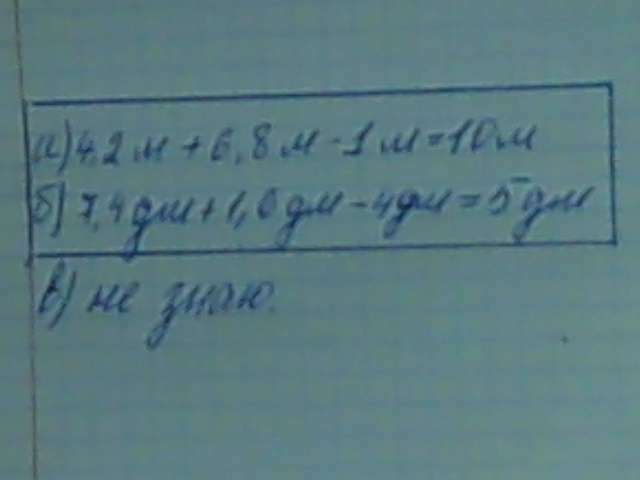 а) 4,2 м + 6,8 м - 1 м = 10 м
б) 7,4 дм + 1,6 дм - 4 дм = 5 дм
в) не знаю.